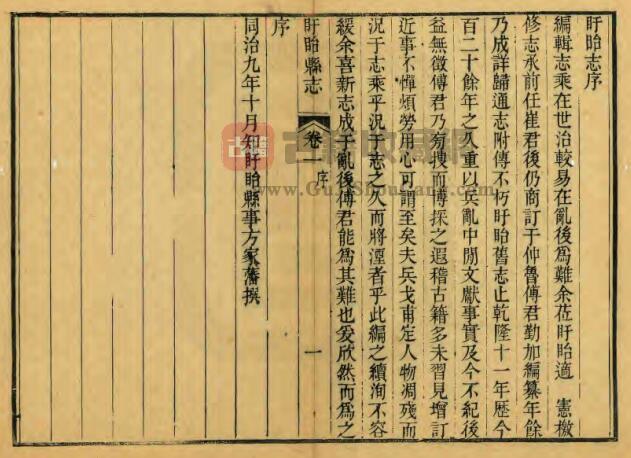 盱眙志序
編輯志乘在世治較易在亂後爲難余莅盱眙適 憲檄
修志承前任崔君後仍商訂于仲魯傅君勤加編纂年餘
乃成詳歸通志附傳不朽盱眙舊志止乾隆十一年歷今
百二十餘年之久重以兵亂中閒文獻事實及今不紀後
益無徵傅君乃窮搜而博採之遐稽古籍多未習見增訂
近事不憚煩勞用心可謂至矣夫兵戈甫定人物凋殘而
況于志乘乎況于志之久而將湮者乎此編之續洵不容
緩余喜新志成于亂後傅君能爲其難也爰欣然而爲之
盱眙縣志 卷一 序 一
序
同治九年十月知盱眙縣事方家藩撰
古籍收藏網
www.GuJiShouCang.com